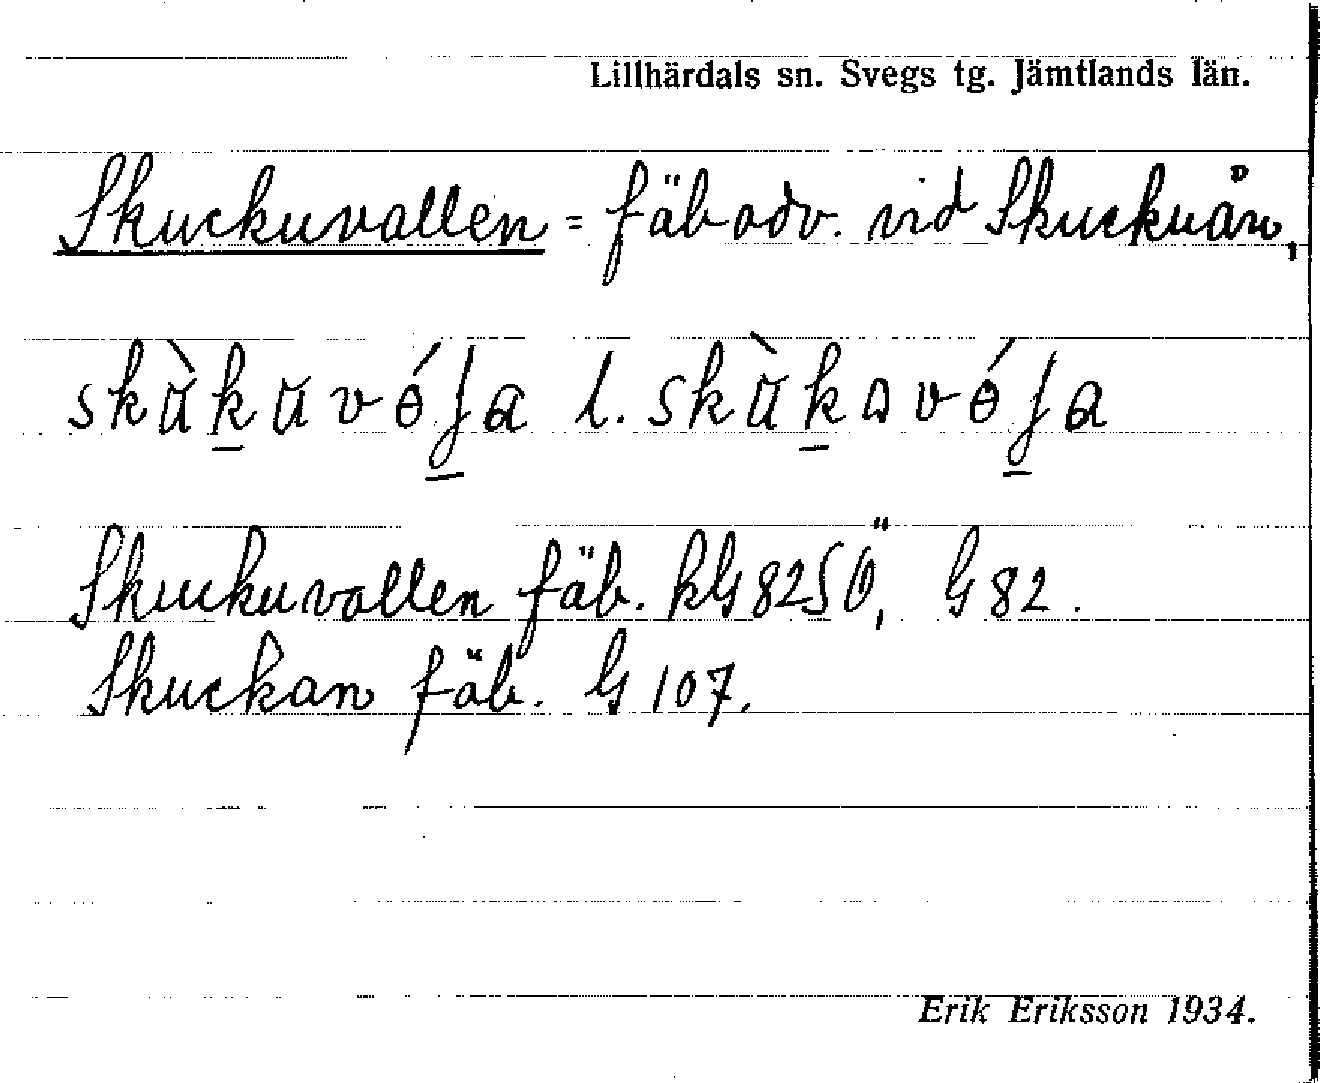 Lillhärdals sn. Svegs tg. Jämtlands län.
Skuckuvallen = fäbodv. vid Skuckuån,
skùk̠ŭvɵ́ʃ̠a l. skùk̠avɵ́ʃ̠a
Skuckuvallen fäb. kG 8250, G 82.
Skuckan fäb. G 107.
Erik Eriksson 1934.